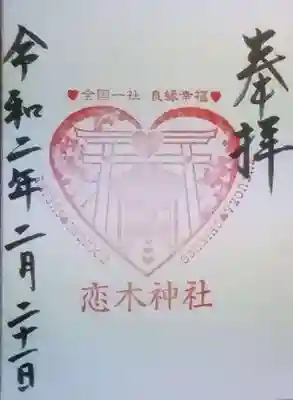 奉拝
♥全国一社 良縁幸福♥
恋木神社
令和二年二月二十一日